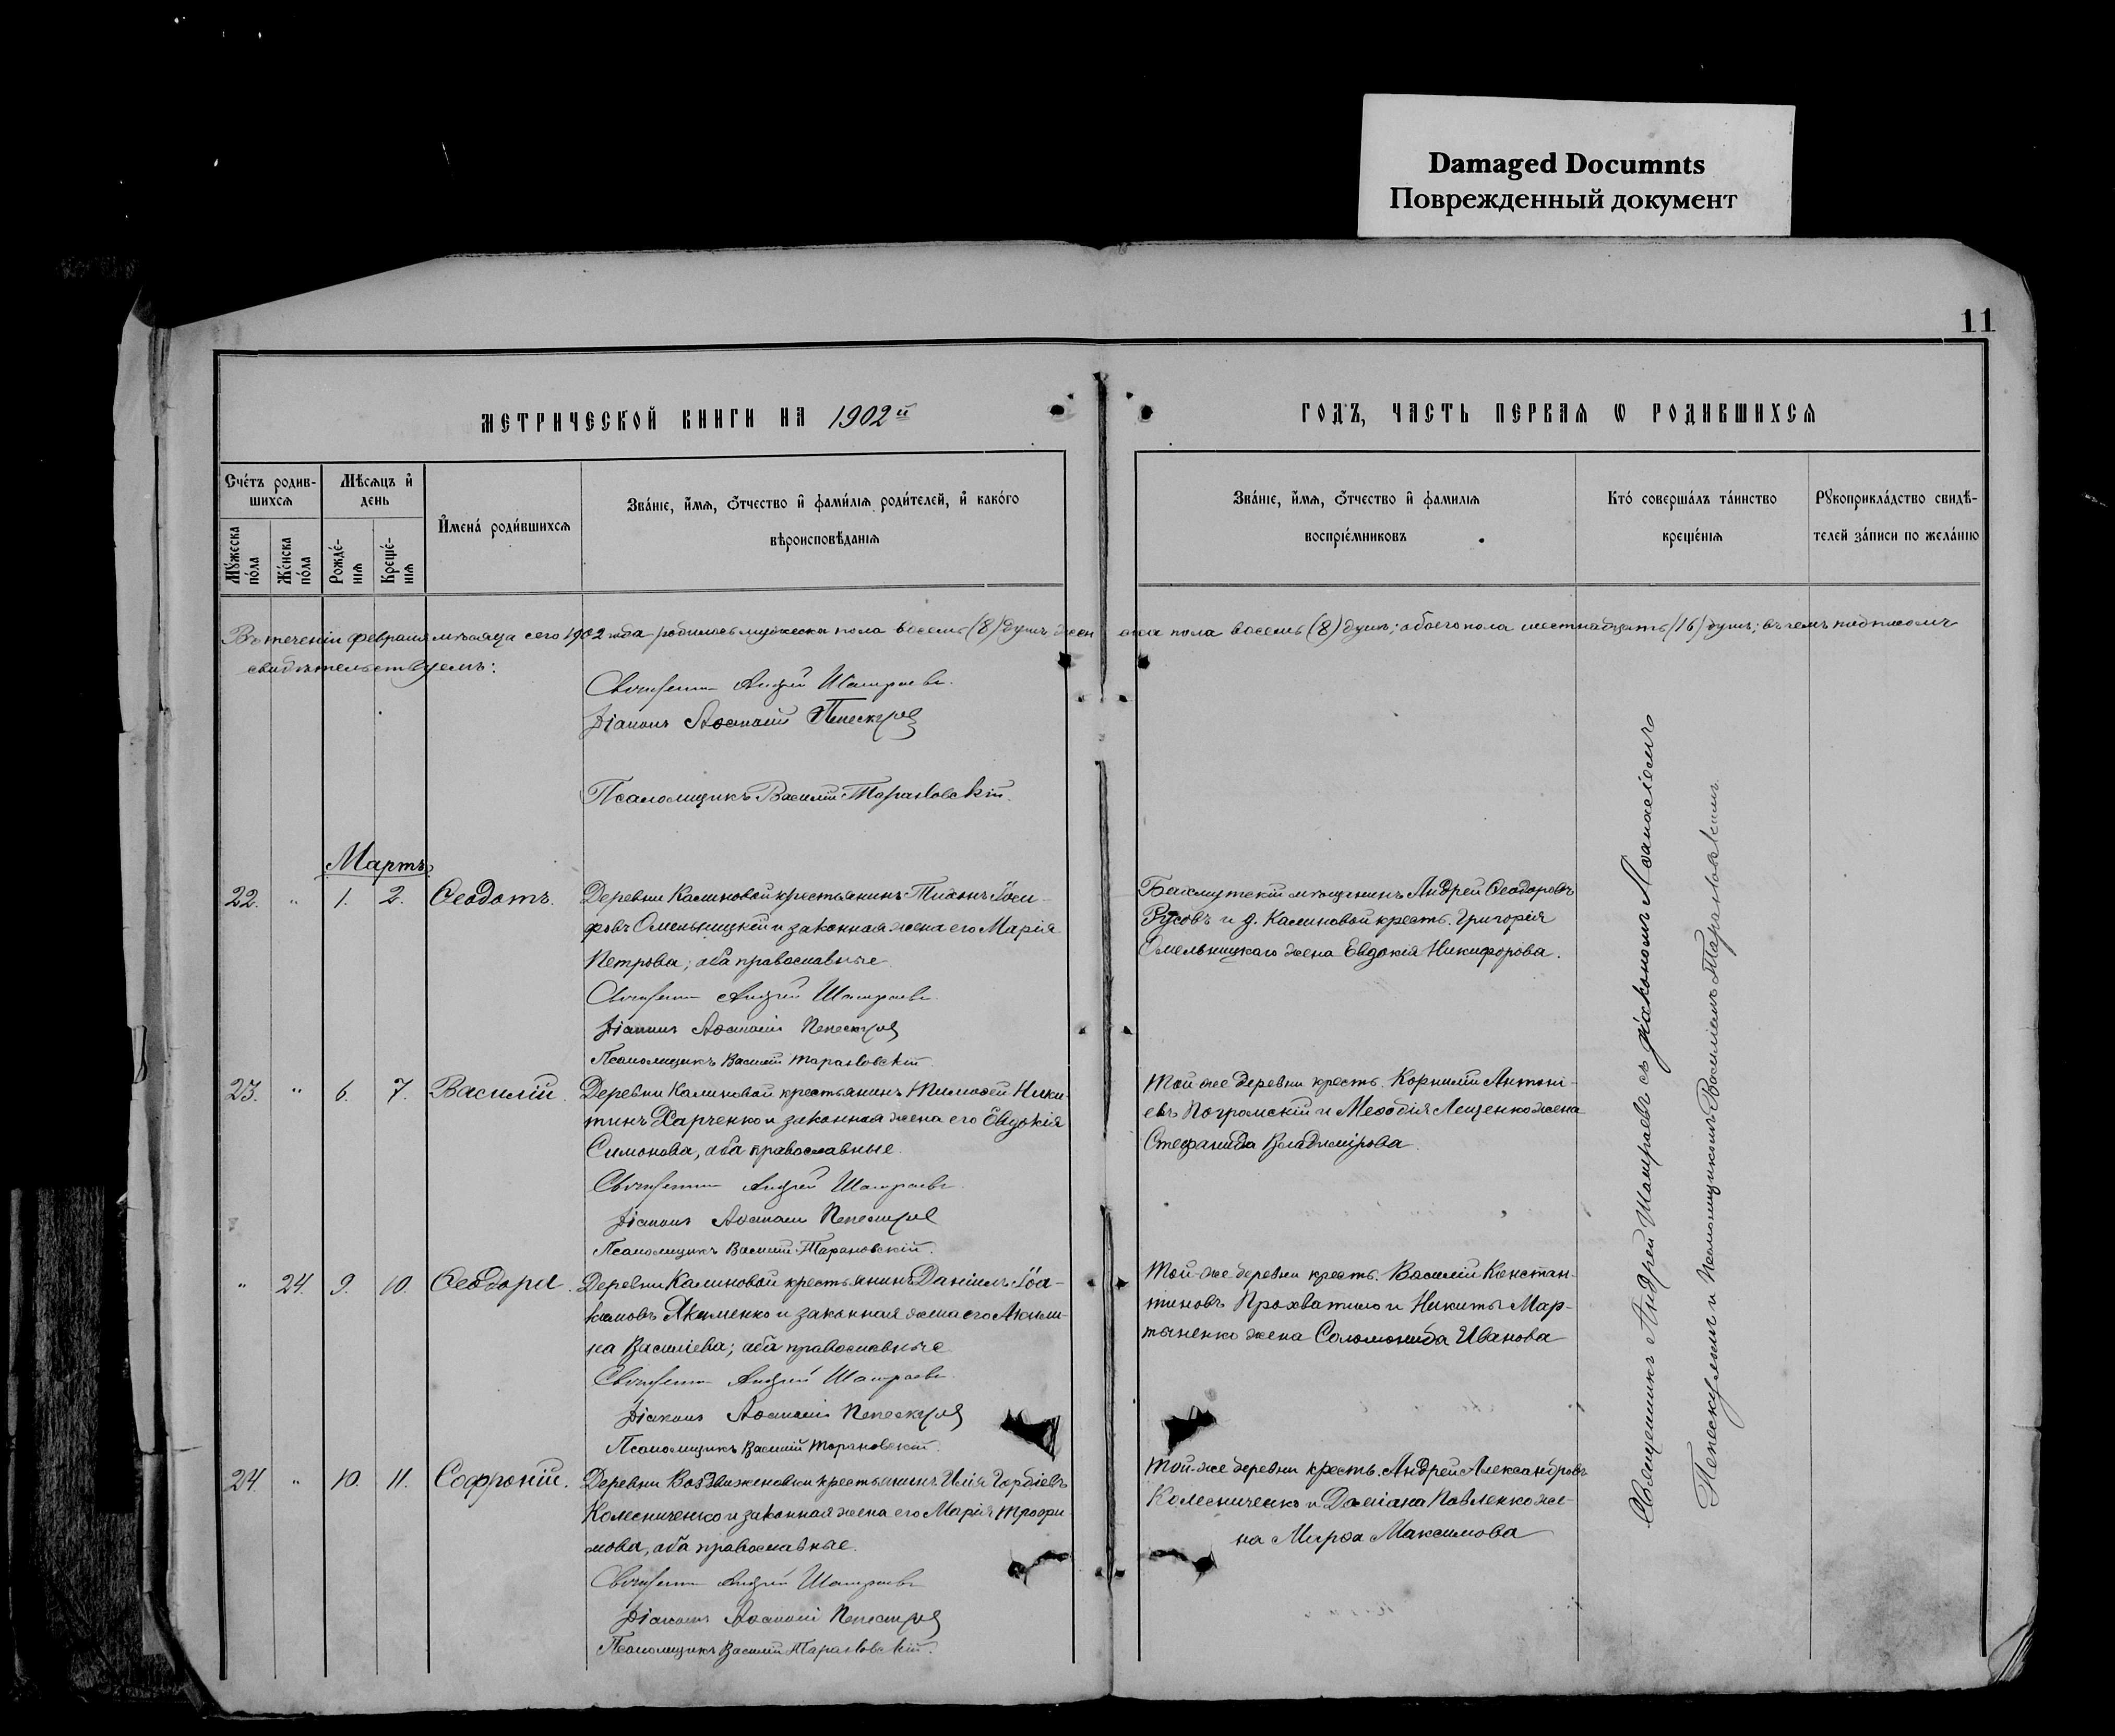 Damaged Documnts
Поврежденный документ
11
МЕТРИЧЕСКОЙ КНИГИ НА 1902й
ГОДЪ, ЧАСТЬ ПЕРВАЯ Ѡ РОДИВШИХСЯ
Счетъ родив-
шихся
Мѣсяцъ и
день
Мужеска
пола
Женска
пола
Рожде-
нія
Креще-
нія
Имена родившихся
Званіе, имя, отчество и фамилія родителей, и какого
вѣроисповѣданія
Званіе, имя, отчество и фамилія
воспріемниковъ
Кто совершалъ таинство
крещенія
Рукоприкладство свидѣ-
телей записи по желанію
Въ теченіи февраля мѣсяца сего 1902 года родилось мужеска пола восемь (8) душъ, жен ска пола восемь (8) душъ; обоего пола шестнадцать (16) душъ; въ чемъ подписомъ
свидѣтельствуемъ:
Священникъ Андрей Шатраевъ
Діаконъ Аѳанасій Пепескулъ
Псаломщикъ Василій Тарановскій.
Мартъ
22. " 1. 2. Ѳеодотъ.
Деревни Калиновой крестьянинъ Тихонъ Іоси-
фовъ Омельницкій и законная жена его Марія
Петрова; оба православные
Священникъ Андрей Шатраевъ
Діаконъ Аѳанасій Пепескулъ
Псаломщикъ Василій Тарановскій
Бахмутскій мѣщанинъ Андрей Ѳеодоровъ
Русовъ и д. Калиновой крест. Григорія
Омельницкаго жена Евдокія Никифорова.
23. " 6. 7. Василій.
Деревни Калиновой крестьянинъ Тимоѳей Ники-
тинъ Харченко и законная жена его Евдокія
Симонова, оба православные
Священникъ Андрей Шатраевъ
Діаконъ Аѳанасій Пепескулъ
Псаломщикъ Василій Тарановскій.
Той же деревни крестъ. Корнилій Антоні-
евъ Погромскій и Меѳодія Лещенко жена
Стефанида Владимірова.
" 24. 9. 10. Ѳеодора.
Деревни Калиновой крестьянинъ Даніилъ Іоа-
кимовъ Якименко и законная жена его Акили-
на Василіева; оба православные
Священникъ Андрей Шатраевъ
Діаконъ Аѳанасій Пепескулъ
Псаломщикъ Василій Тарановскій.
Той же деревни крестъ. Василій Констан-
тиновъ Прохватило и Никиты Мар-
тыненко жена Соломонида Иванова
24 " 10. 11. Софроній.
Деревни Воздвиженовки крестьянинъ Илія Гордіевъ
Колесниченко и законная жена его Марія Трофи-
мова, оба православные.
Священникъ Андрей Шатраевъ
Діаконъ Аѳанасій Пепескулъ
Псаломщикъ Василій Тарановскій.
Той-же деревни крестъ. Андрей Александровъ
Колесниченко и Даміана Павленко же-
на Марѳа Максимова
Священникъ Андрей Шатраевъ съ діакономъ Аѳанасіемъ
Пепескуломъ и псаломщикомъ Василіемъ Тарановскимъ